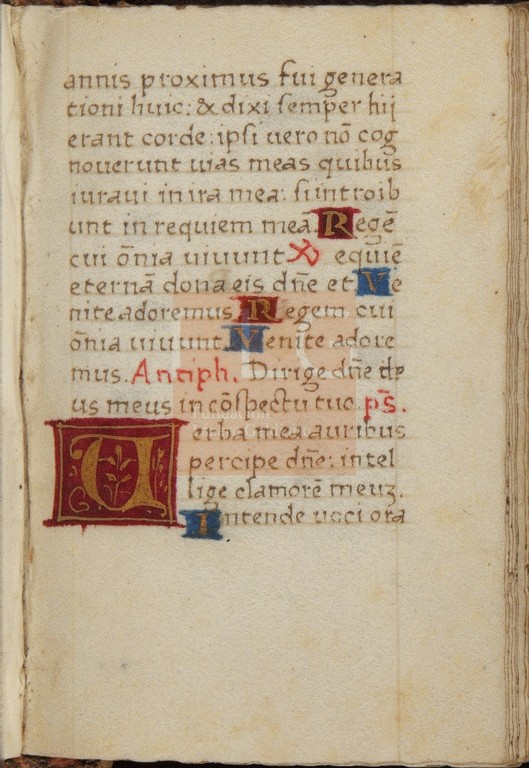 annis proximus fui genera
tioni huic: & dixi semper hij
erant corde: ipsi vero nõ cog
noverunt vias meas quibus
iuravi in ira mea: si introib
unt in requiem meã. Regẽ
cui õnia vivunt. R equiẽ
eternã dona eis dñe et Ve
nite adoremus. Regem cui
õnia vivunt. Venite adore
mus. Antiph. Dirige dñe de
us meus in cõspectu tuo. ps̃.
Verba mea auribus
percipe dñe: intel
lige clamorẽ meuz.
Intende voci ora